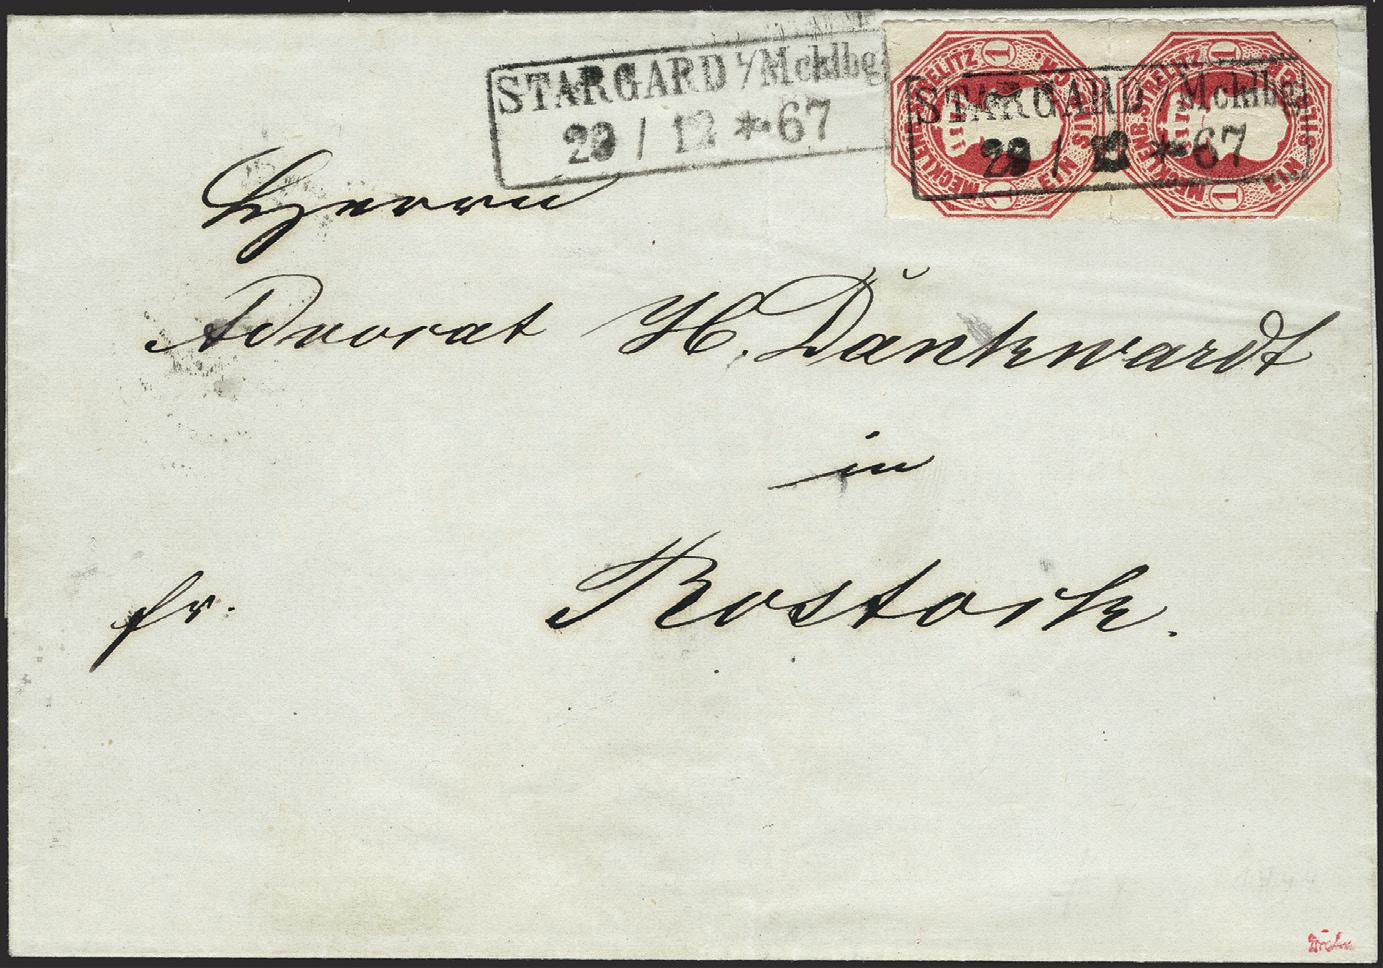 STARGARD i/Mcklbg.
29 / 12 * 67
STARGARD i/Mcklbg.
29 / 12 * 67
MECKLENB. STRELITZ 1 EIN SILB. 1
MECKLENB. STRELITZ 1 EIN SILB. 1
Herrn
Advocat H. Dankwardt
in
fr. Rostock.